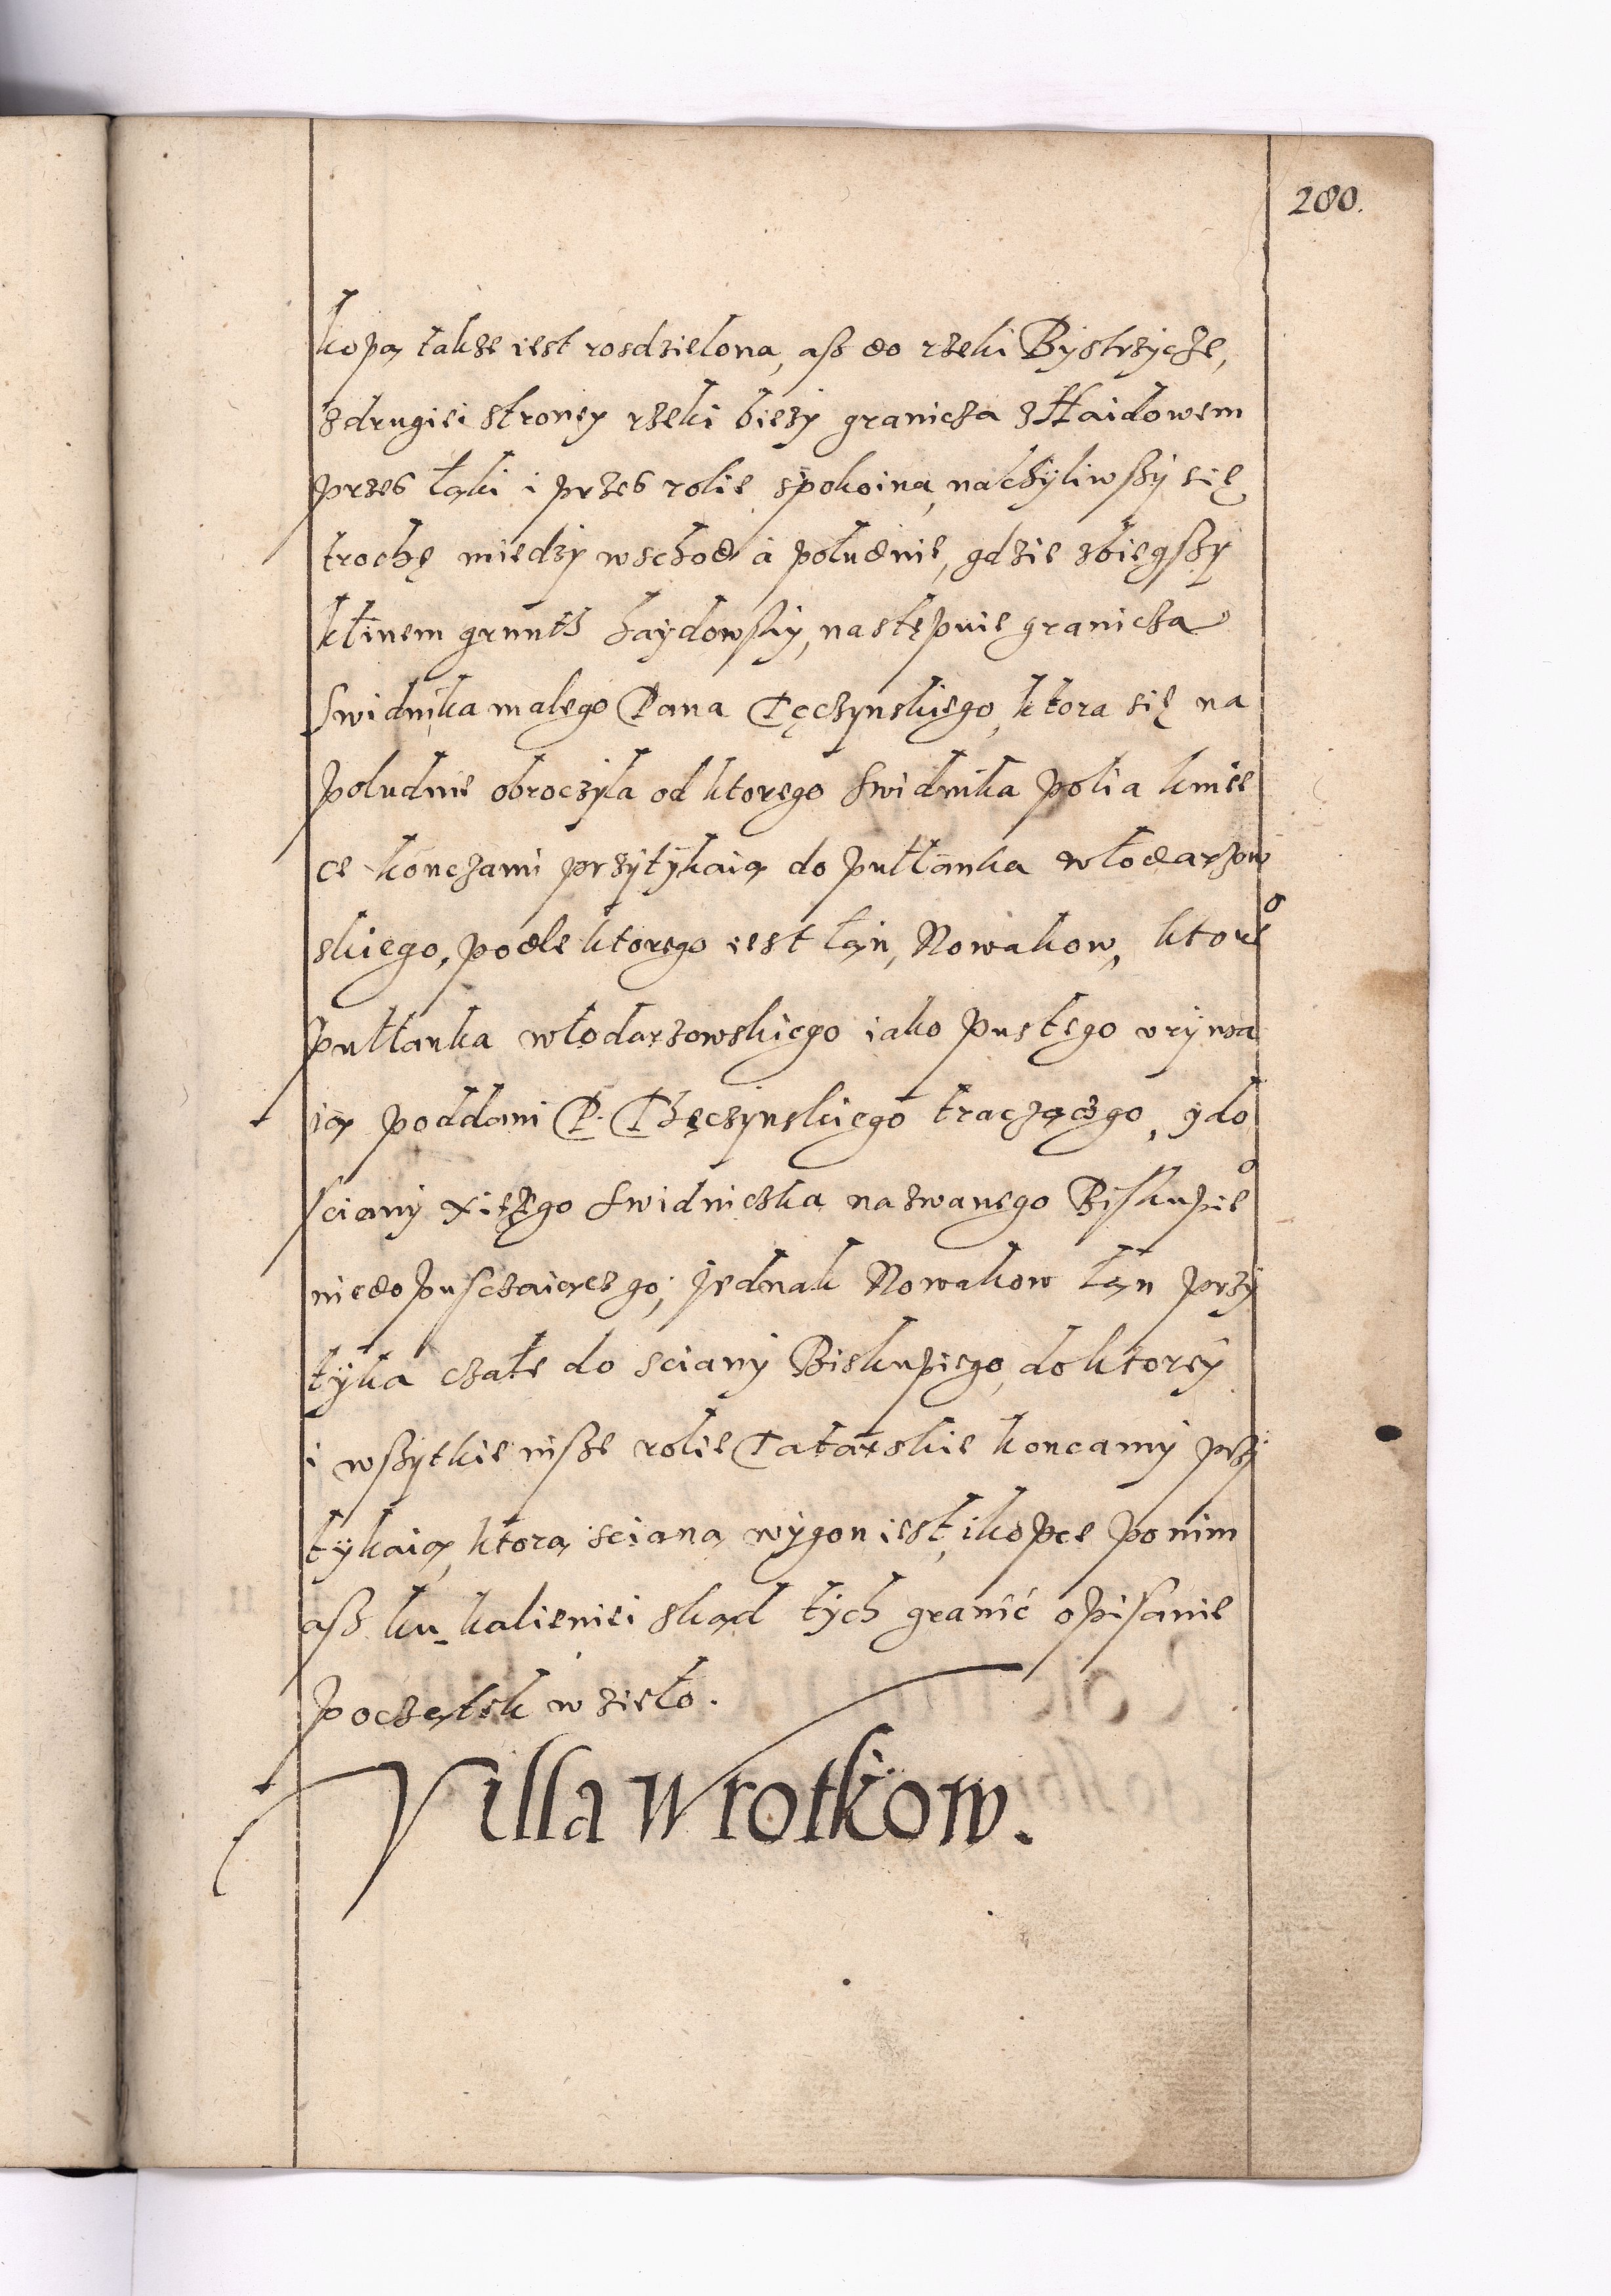 280.
kopą takze iest rosdzielona, asz do rzeki Bystrzycze,
z drugiei stroney rzeki biezy granicza z Haidowem
przes łąki i przes rolie spokoiną, nachyliwszy się
trochę miedzy wschod a południe, gdzie zbiegszy
klinem grunth haydowsky, nastepuie granicza
Swidnika malego Pana Tęczynskiego, ktora się na
południe obroczyla od ktorego Swidnika polia kmie
ce konczami przytykaią do pułłanka włodarzow
skiego, podle ktorego iest łąn, Nowakow, ktore°
pułłanka włodarzowskiego iako pustego uzywa
ią poddani P. Thęczynskiego traczączgo, y do
sciany xiężego Swidniczka nazwanego Biskupie°
niedopusczaiączgo; jednak Nowakow łąn przy
tyka czałe do sciany Biskupiego, do ktorey
i wszytkie insze rolie Tatarskie koncamy przy
tykaią, ktora sciana, wygon iest, i kopce po nim
asz ku kalieniei skąd tych granic opisanie
początek wzieło.
Villa Wrotkow.